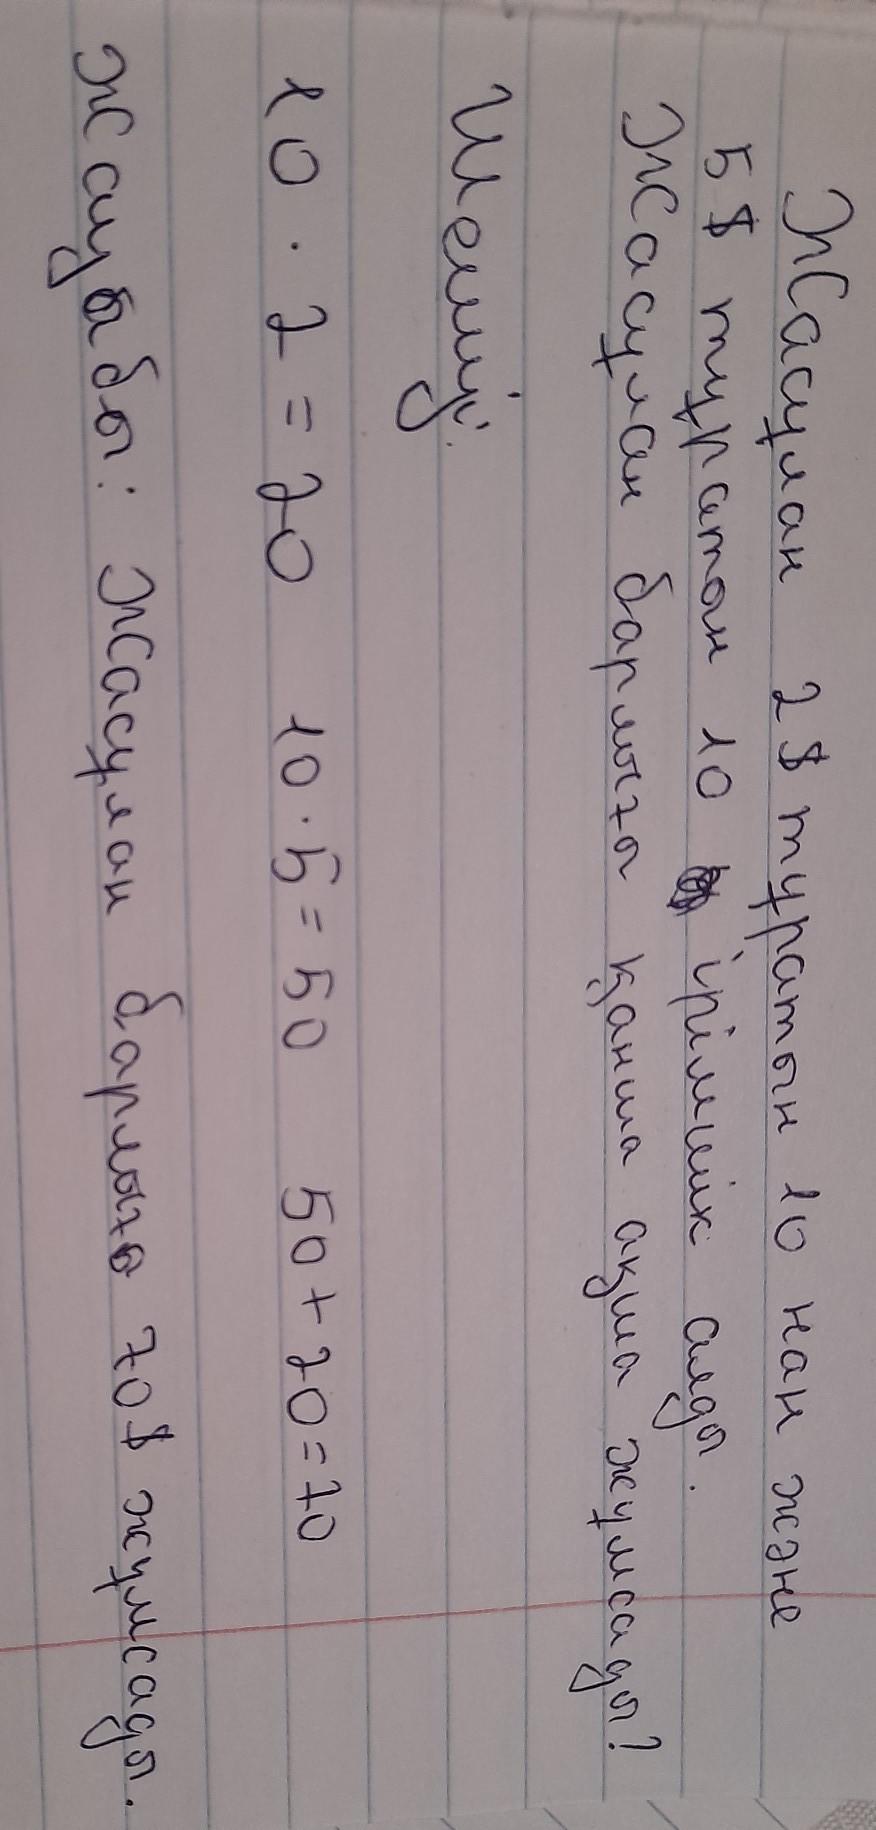 Жасұлан 2$ тұратын 10 нан және
5$ тұратын 10 ірімшік алды.
Жасұлан барлығы қанша ақша жұмсады?
Шешуі:
10 · 2 = 20 10 · 5 = 50 50 + 20 = 70
Жауабы: Жасұлан барлығы 70$ жұмсады.